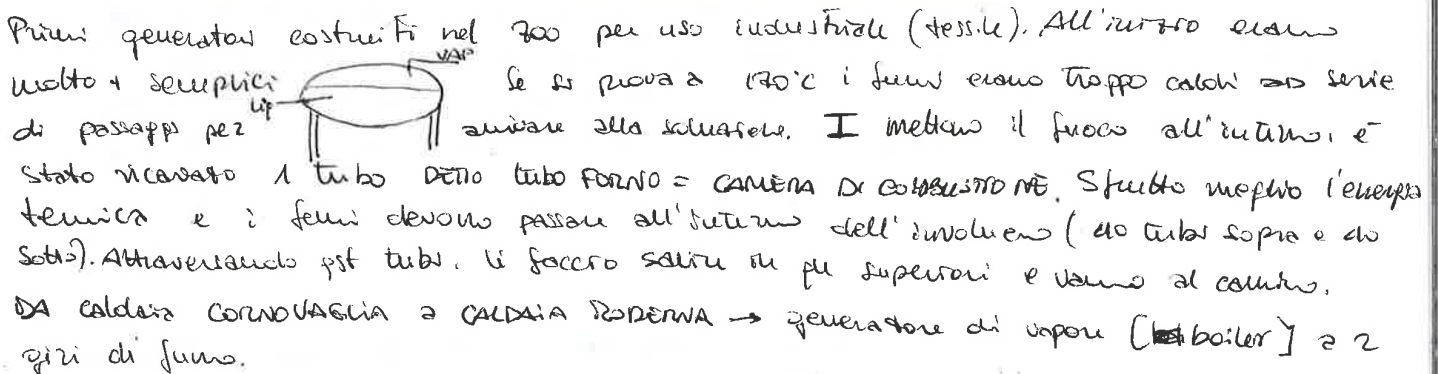 Primi generatori costruiti nel 700 per uso industriale (tessile). All'inizio erano
molto + semplici VAP Se si prova a 170°C i fumi erano troppo caldi => serie
di passaggi per liq arrivare alla soluzione. I mettono il fuoco all'interno, è
stato ricavato 1 tubo DETTO tubo FORNO = CAMERA DI COMBUSTIONE. Sfrutto meglio l'energia
termica e i fumi devono passare all'interno dell'involucro ( tubi sopra e
sotto). Attraversando qst tubi. li faccio salire in qu superiori e vanno al camino.
DA caldaia CORNOVAGLIA a CALDAIA MODERNA → generatore di vapore [boiler] a 2
giri di fumo.